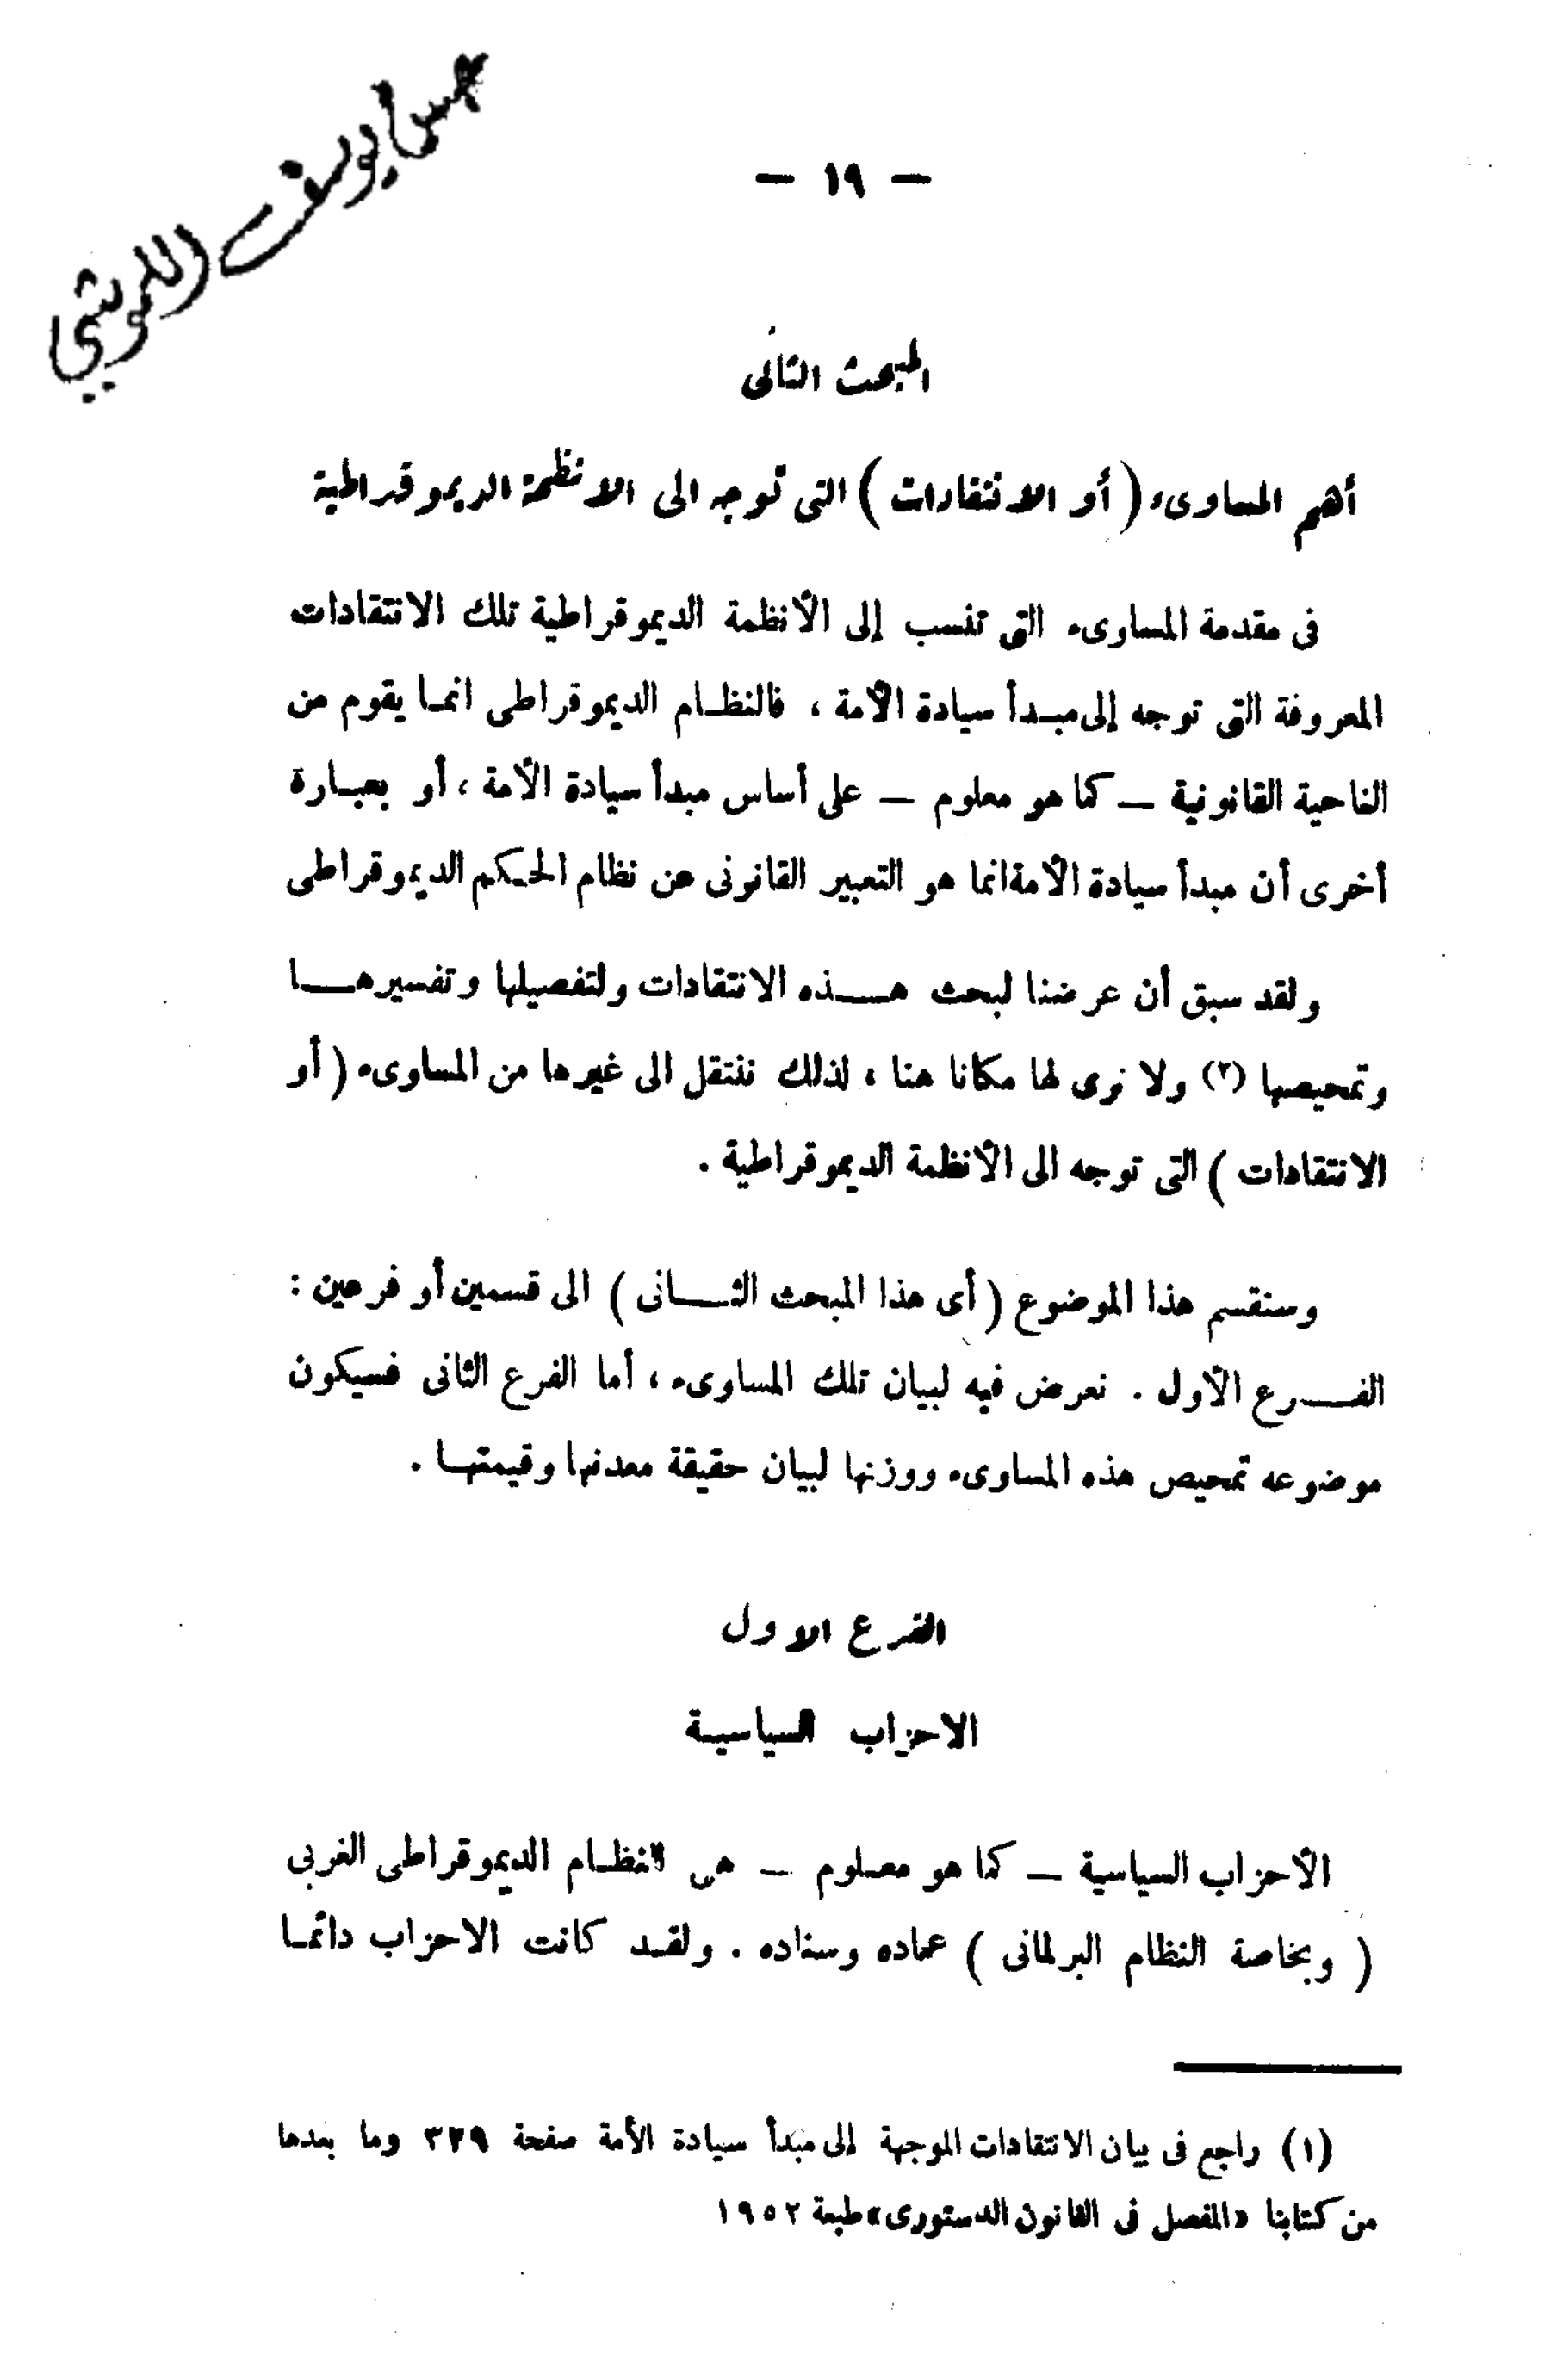 حسن يوسف اللموشي
— ١٩ —
المبحث الثانى
أهم المساوىء ( أو الانتقادات ) التى توجه الى الانظمة الديموقراطية
فى مقدمة المساوىء التى تنسب إلى الأنظمة الديموقراطية تلك الانتقادات
المعروفة التى توجه إلى مبدأ سيادة الأمة ، فالنظام الديموقراطى انما يقوم من
الناحية القانونية — كما هو معلوم — على أساس مبدأ سيادة الأمة ، أو بعبارة
أخرى أن مبدأ سيادة الأمة انما هو التعبير القانونى عن نظام الحكم الديموقراطى
ولقد سبق أن عرضنا لبحث هذه الانتقادات ولتفصيلها وتفسيرها
وتمحيصها (٢) ولا نرى لها مكانا هنا ، لذلك ننتقل الى غيرها من المساوىء ( أو
الانتقادات ) التى توجه الى الأنظمة الديموقراطية .
وسنقسم هذا الموضوع ( أى هذا المبحث الثانى ) الى قسمين أو فرعين :
الفرع الأول . نعرض فيه لبيان تلك المساوىء ، أما الفرع الثانى فسيكون
موضوعه تمحيص هذه المساوىء ووزنها لبيان حقيقة معدنها وقيمتها .
الفرع الاول
الاحزاب السياسية
الأحزاب السياسية — كما هو معلوم — هى للنظام الديموقراطى الغربى
( وبخاصة النظام البرلمانى ) عماده وسناده . ولقد كانت الاحزاب دائما
(١) راجع فى بيان الانتقادات الموجهة إلى مبدأ سيادة الأمة صفحة ٣٣٩ وما بعدها
من كتابنا «المفصل فى القانون الدستورى» طبعة ١٩٥٢